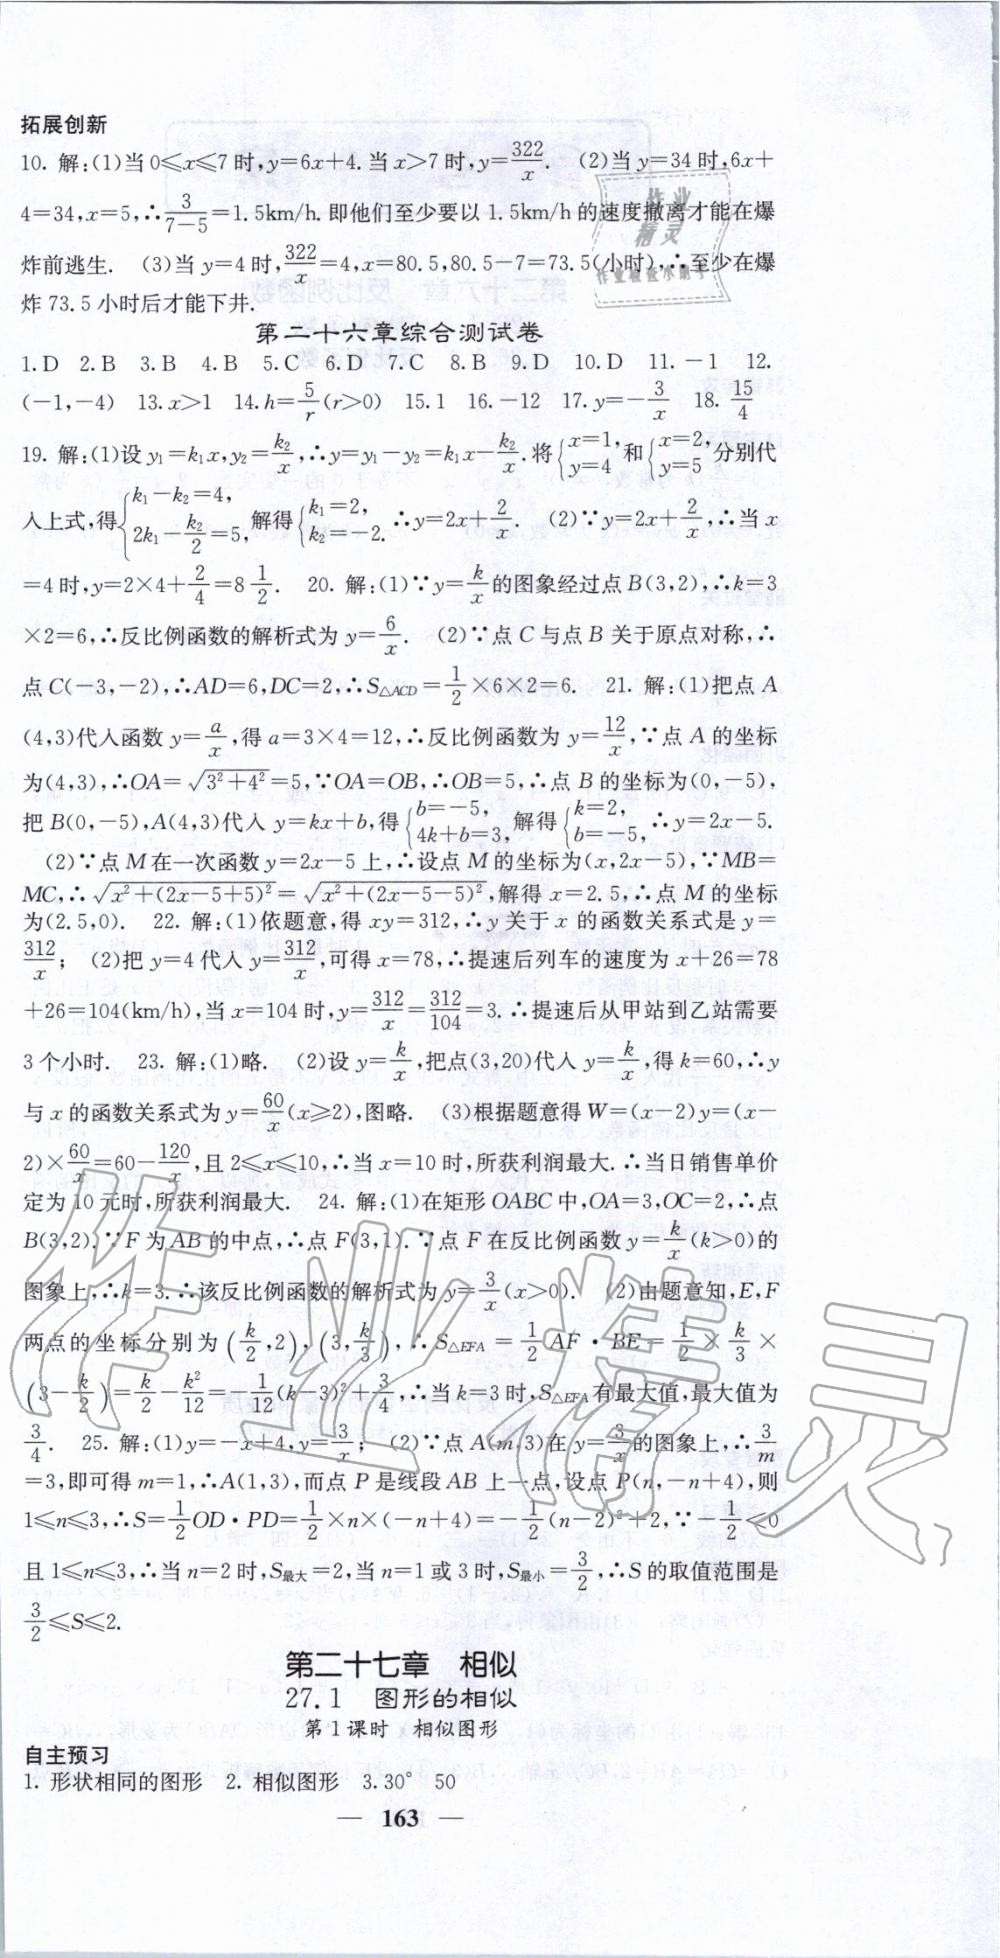 拓展创新
10. 解:(1)当 0≤x≤7 时,y=6x+4. 当 x>7 时,y=322/x. (2)当 y=34 时,6x+
4=34,x=5,∴3/(7-5)=1.5km/h. 即他们至少要以 1.5km/h 的速度撤离才能在爆
炸前逃生. (3)当 y=4 时,322/x=4,x=80.5,80.5-7=73.5(小时),∴至少在爆
炸 73.5 小时后才能下井.
第二十六章综合测试卷
1.D 2.B 3.B 4.B 5.C 6.D 7.C 8.B 9.D 10.D 11.-1 12.
(-1,-4) 13.x>1 14.h=5/r(r>0) 15.1 16.-12 17.y=-3/x 18.15/4
19. 解:(1)设 y₁=k₁x,y₂=k₂/x,∴y=y₁-y₂=k₁x-k₂/x. 将{x=1, y=4 和{x=2, y=5 分别代
入上式,得{k₁-k₂=4, 2k₁-k₂/2=5, 解得{k₁=2, k₂=-2. ∴y=2x+2/x. (2)∵y=2x+2/x,∴当 x
=4 时,y=2×4+2/4=8 1/2. 20. 解:(1)∵y=k/x 的图象经过点 B(3,2),∴k=3
×2=6,∴反比例函数的解析式为 y=6/x. (2)∵点 C 与点 B 关于原点对称,∴
点 C(-3,-2),∴AD=6,DC=2,∴S△ACD=1/2×6×2=6. 21. 解:(1)把点 A
(4,3)代入函数 y=a/x,得 a=3×4=12,∴反比例函数为 y=12/x,∵点 A 的坐标
为(4,3),∴OA=√(3²+4²)=5,∵OA=OB,∴OB=5,∴点 B 的坐标为(0,-5),
把 B(0,-5),A(4,3)代入 y=kx+b,得{b=-5, 4k+b=3, 解得{k=2, b=-5, ∴y=2x-5.
(2)∵点 M 在一次函数 y=2x-5 上,∴设点 M 的坐标为(x,2x-5),∵MB=
MC,∴√(x²+(2x-5+5)²)=√(x²+(2x-5-5)²),解得 x=2.5,∴点 M 的坐标
为(2.5,0). 22. 解:(1)依题意,得 xy=312,∴y 关于 x 的函数关系式是 y=
312/x; (2)把 y=4 代入 y=312/x,可得 x=78,∴提速后列车的速度为 x+26=78
+26=104(km/h),当 x=104 时,y=312/x=312/104=3. ∴提速后从甲站到乙站需要
3 个小时. 23. 解:(1)略. (2)设 y=k/x,把点(3,20)代入 y=k/x,得 k=60,∴y
与 x 的函数关系式为 y=60/x(x≥2),图略. (3)根据题意得 W=(x-2)y=(x-
2)×60/x=60-120/x,且 2≤x≤10,∴当 x=10 时,所获利润最大. ∴当日销售单价
定为 10 元时,所获利润最大. 24. 解:(1)在矩形 OABC 中,OA=3,OC=2,∴点
B(3,2). ∵F 为 AB 的中点,∴点 F(3,1). ∵点 F 在反比例函数 y=k/x(k>0)的
图象上,∴k=3. ∴该反比例函数的解析式为 y=3/x(x>0). (2)由题意知,E,F
两点的坐标分别为(k/2,2),(3,k/3),∴S△EFA=1/2AF·BE=1/2×k/3×
(3-k/2)=k/2-k²/12=-1/12(k-3)²+3/4,∴当 k=3 时,S△EFA有最大值,最大值为
3/4. 25. 解:(1)y=-x+4,y=3/x; (2)∵点 A(m,3)在 y=3/x的图象上,∴3/m
=3,即可得 m=1,∴A(1,3),而点 P 是线段 AB 上一点,设点 P(n,-n+4),则
1≤n≤3,∴S=1/2OD·PD=1/2×n×(-n+4)=-1/2(n-2)²+2,∵-1/2<0
且 1≤n≤3,∴当 n=2 时,S最大=2,当 n=1 或 3 时,S最小=3/2,∴S 的取值范围是
3/2≤S≤2.
第二十七章 相似
27.1 图形的相似
第 1 课时 相似图形
自主预习
1. 形状相同的图形 2. 相似图形 3.30° 50
— 163 —
作业精灵
炸业
精灵
作业检查小助手